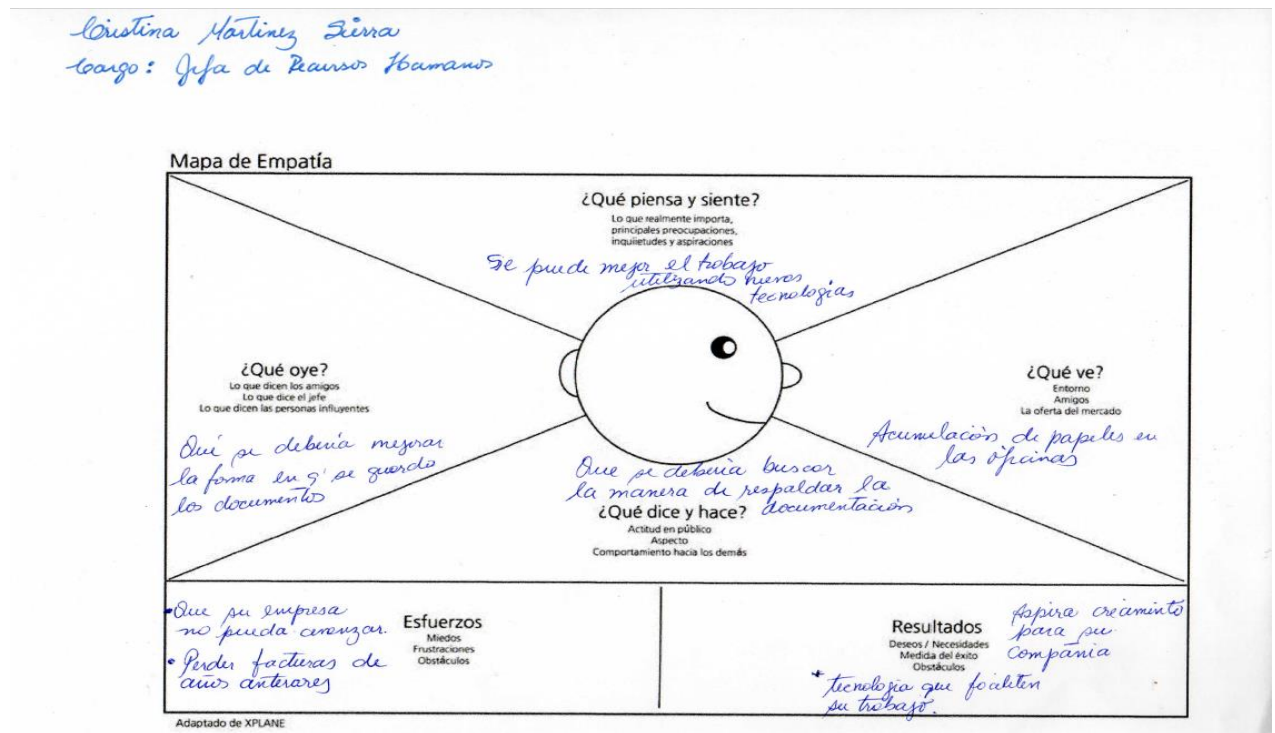 Cristina Martinez Sierra
Cargo: Jefa de Recursos Humanos
Mapa de Empatía
¿Qué piensa y siente?
Lo que realmente importa,
principales preocupaciones,
inquiietudes y aspiraciones
Se puede mejor el trabajo
utilizando nuevos
tecnologias
¿Qué oye?
Lo que dicen los amigos
Lo que dice el jefe
Lo que dicen las personas influyentes
Qué se debería mejorar
la forma en q' se guardo
los documentos
¿Qué ve?
Entorno
Amigos
La oferta del mercado
Acumulación de papeles en
las oficinas
Que se debería buscar
la manera de respaldar la
documentación
¿Qué dice y hace?
Actitud en público
Aspecto
Comportamiento hacia los demás
• Que su empresa
no pueda avanzar.
• Perder facturas de
años anterares
Esfuerzos
Miedos
Frustraciones
Obstáculos
Resultados
Deseos / Necesidades
Medida del éxito
Obstáculos
Aspira creamiento
para su
compañia
* tecnologia que facliten
su trabajo.
Adaptado de XPLANE